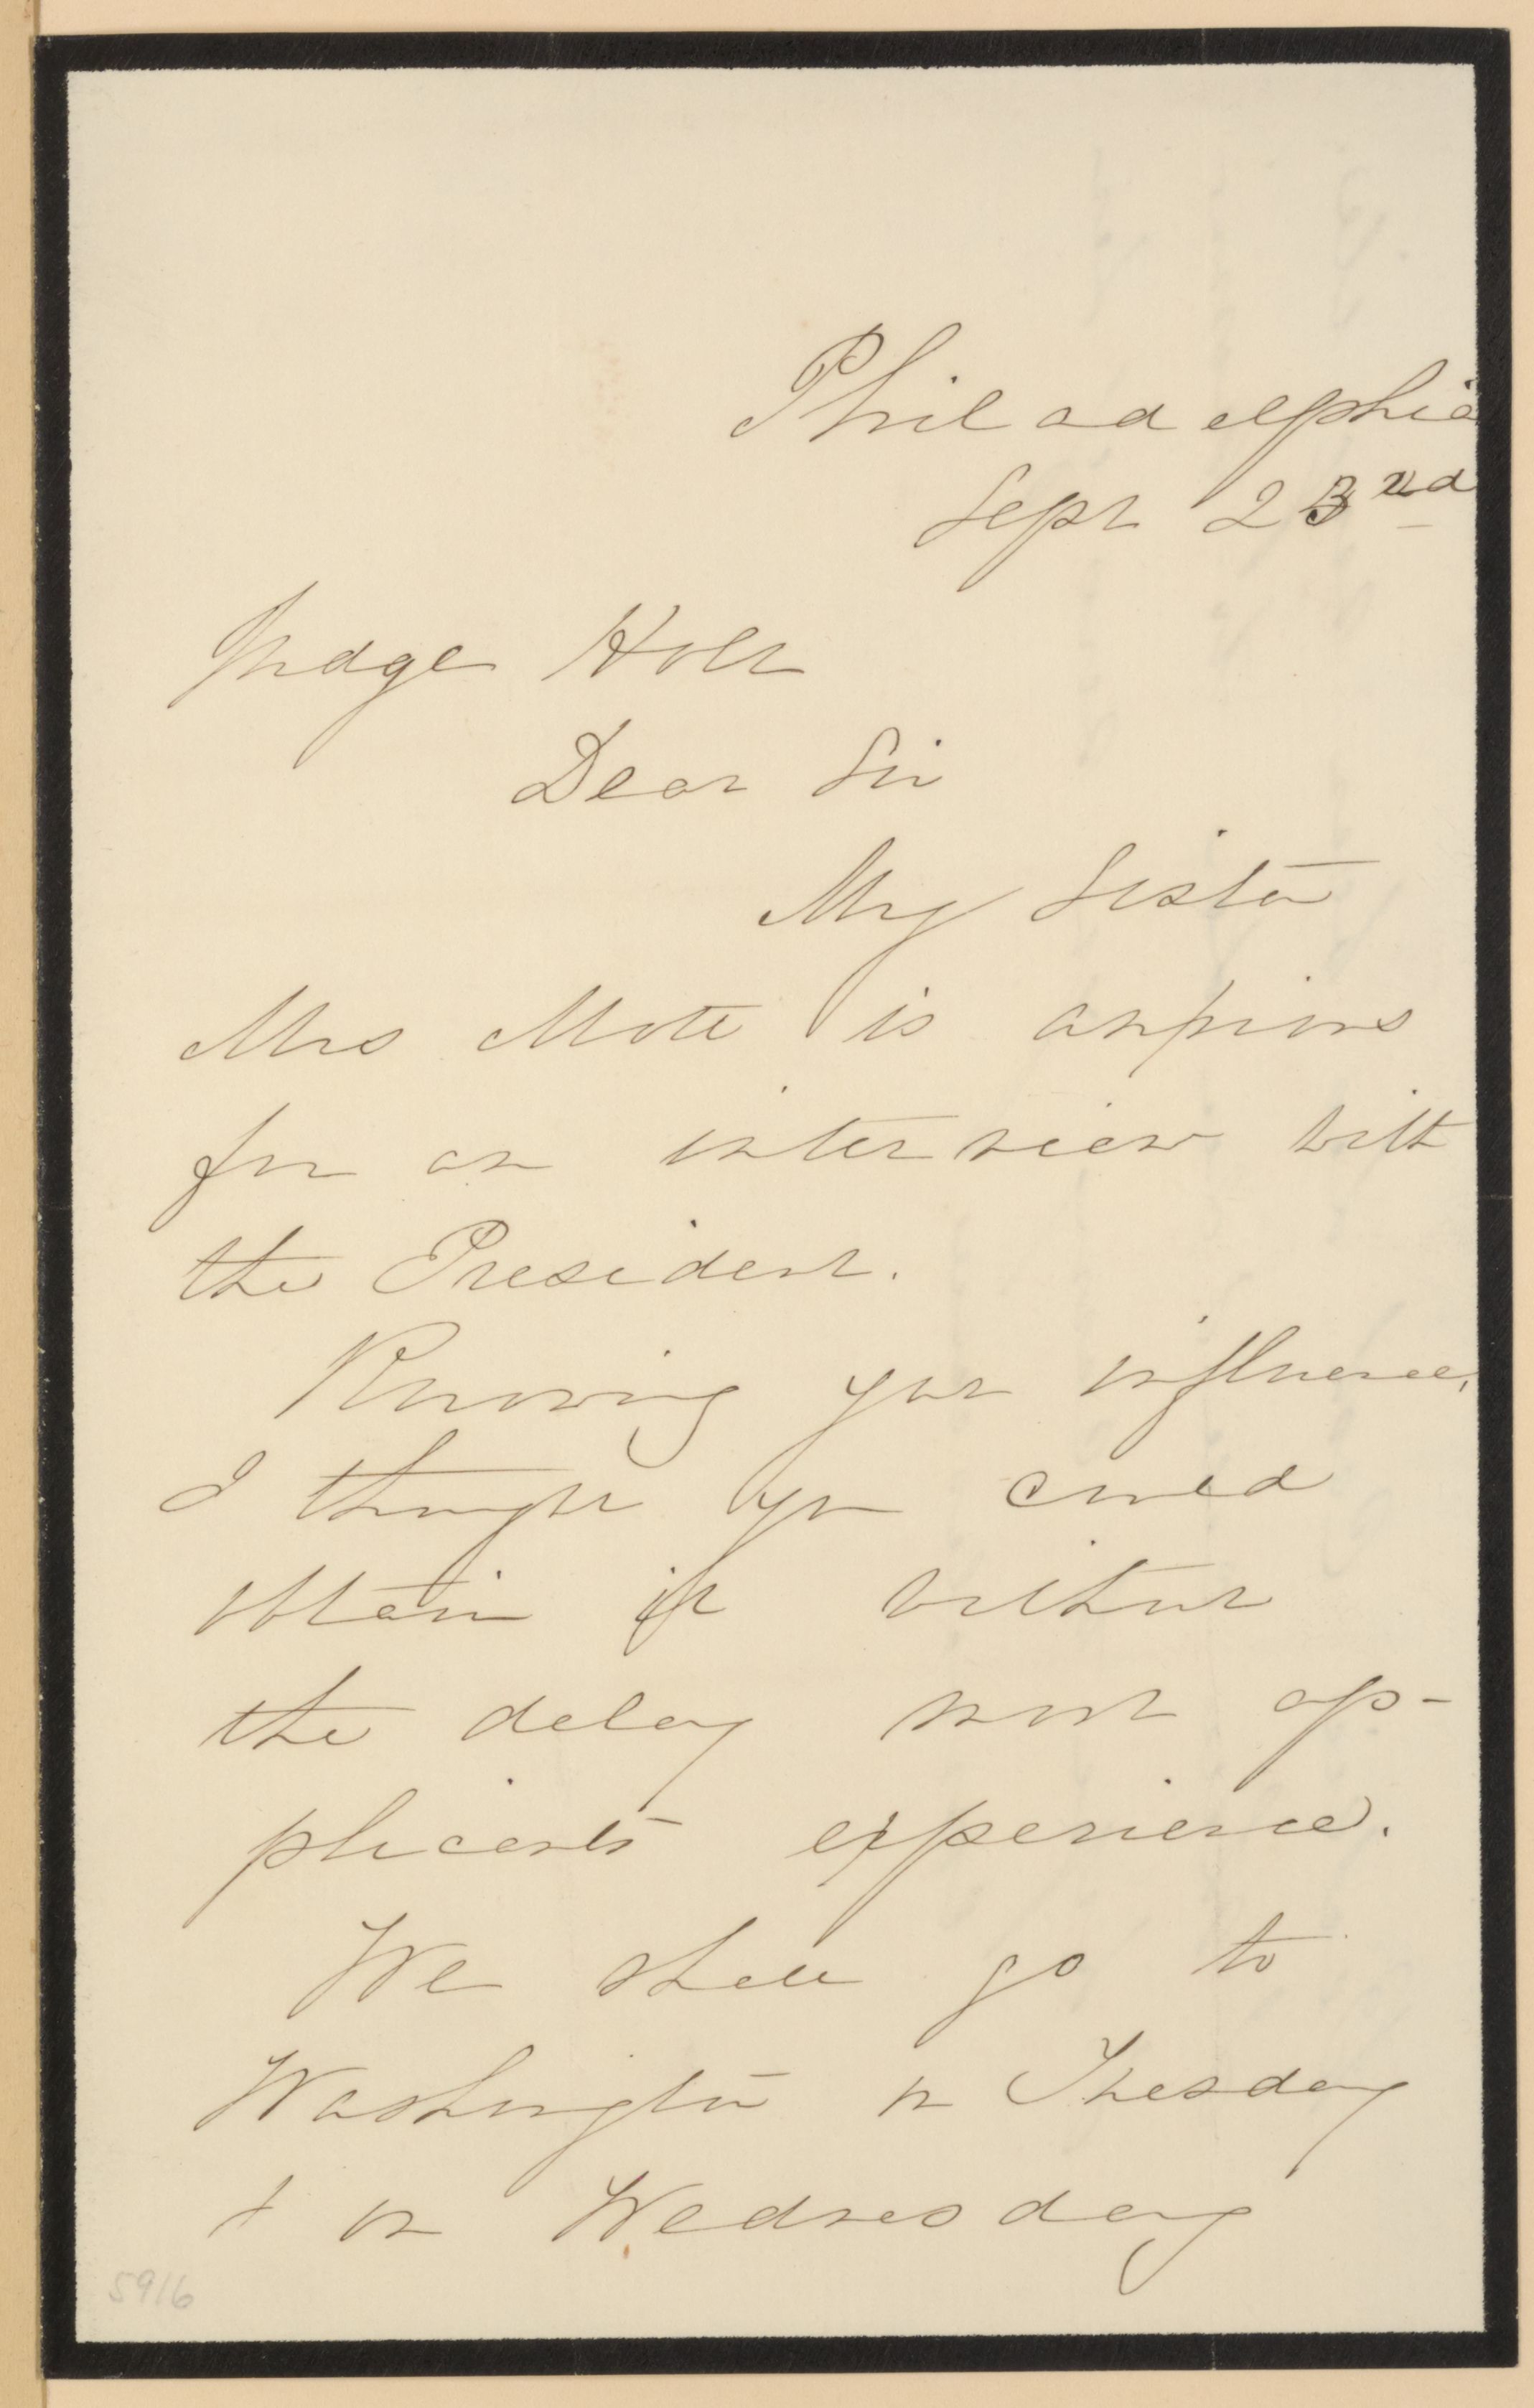 Philadelphia
Sept 23rd
Judge Holt
Dear Sir
My Sister
Mrs Mott is anxious
for an interview with
the President.
Knowing your influence,
I thought you could
obtain it without
the delay most ap-
plicants experience.
We shall go to
Washington on Tuesday
& on Wednesday
5916